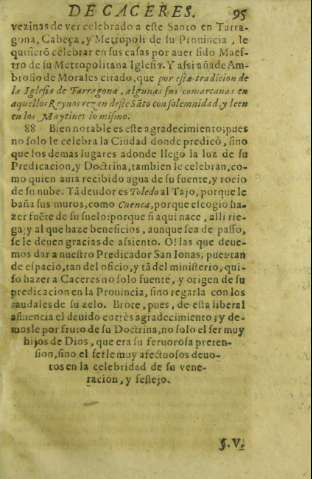 DE CACERES. 95
vezinas de ver celebrado a este Santo en Tarra-
gona, Cabeça, y Metropoli de su Prouincia, le
quisieró celebrar en sus casas por auer sido Maes-
tro de su Metropolitana Iglesia. Y assi añade Am-
brosio de Morales citado, que por esta tradicion de
la Iglesia de Tarragona, algunas sus comarcanas en
aquellos Reynos rezan deste Sāto con solemnidad, y leen
en los Maytines lo mismo.
88 Bien notable es este agradecimiento; pues
no solo le celebra la Ciudad donde predicò, sino
que los demas lugares adonde llegò la luz de su
Predicacion, y Doctrina, tambien le celebran, co-
mo quien auia recibido agua de su fuente, y rocio
de su nube. Tā deudor es Toledo al Tajo, porque le
baña sus muros, como Cuenca, porque el cogio ha-
zer fuēte de su suelo: porque si aqui nace, alli rie-
ga; y al que haze beneficios, aunque sea de passo,
se le deuen gracias de assiento. O! las que deue-
mos dar a nuestro Predicador San Ionas, pues tan
de espacio, tan del oficio, y tā del ministerio, qui-
so hazer a Caceres no solo fuente, y origen de su
predicacion en la Prouincia, sino regarla con los
caudales de su zelo. Brote, pues, de esta liberal
afluencia el deuido cortès agradecimiento; y de-
mosle por fruto de su Doctrina, no solo el ser muy
hijos de Dios, que era su feruorosa preten-
sion, sino el serle muy afectuosos deuo-
tos en la celebridad de su vene-
racion, y festejo.
§. V.